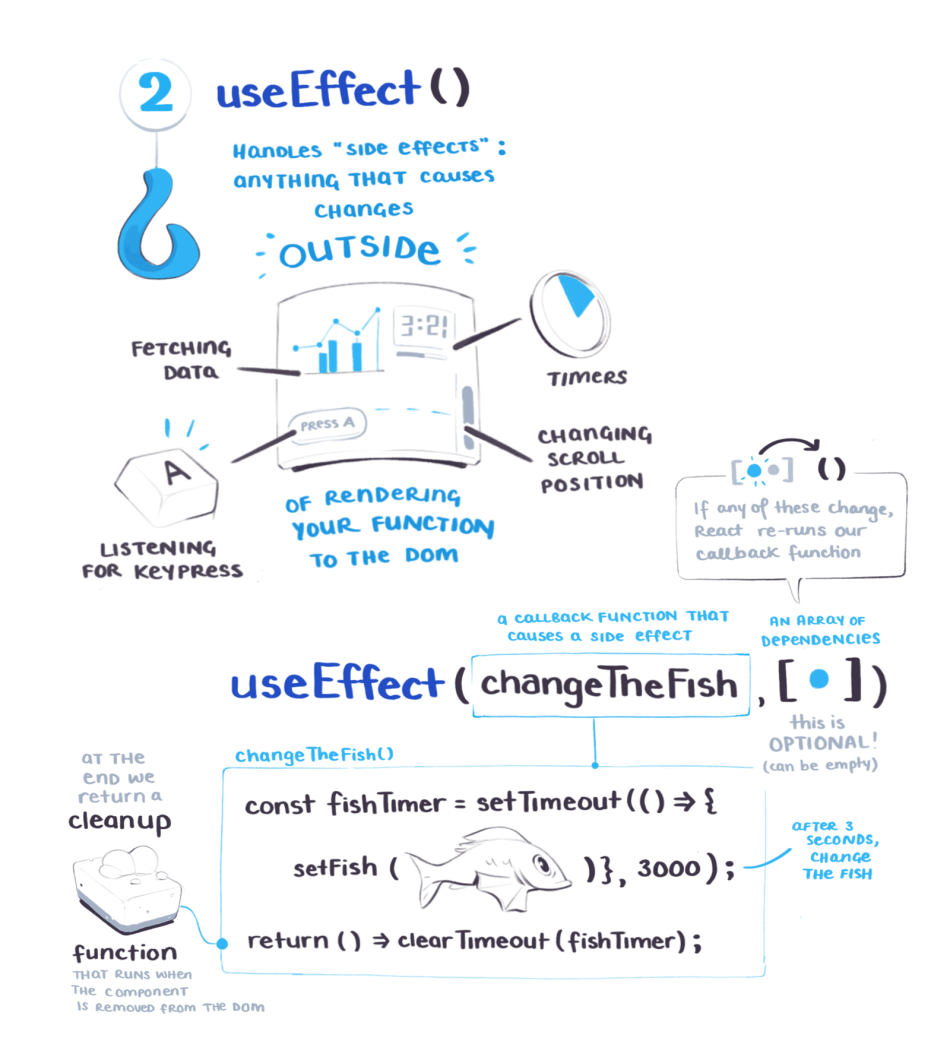 2 useEffect()
Handles "side effects":
anything that causes
changes
OUTSIDE
3:21
FETCHING
DATA
TIMERS
PRESS A
A
CHANGING
SCROLL
POSITION
LISTENING
FOR KEYPRESS
OF RENDERING
YOUR FUNCTION
TO THE DOM
[ ] ()
If any of these change,
React re-runs our
callback function
A CALLBACK FUNCTION THAT
CAUSES A SIDE EFFECT
AN ARRAY OF
DEPENDENCIES
useEffect(changeTheFish, [ ])
this is
OPTIONAL!
(can be empty)
changeTheFish()
AT THE
END WE
return a
cleanup
function
THAT RUNS WHEN
THE COMPONENT
IS REMOVED FROM THE DOM
const fishTimer = setTimeout(() => {
setFish ( )}, 3000);
return () => clearTimeout(fishTimer);
AFTER 3
SECONDS,
CHANGE
THE FISH